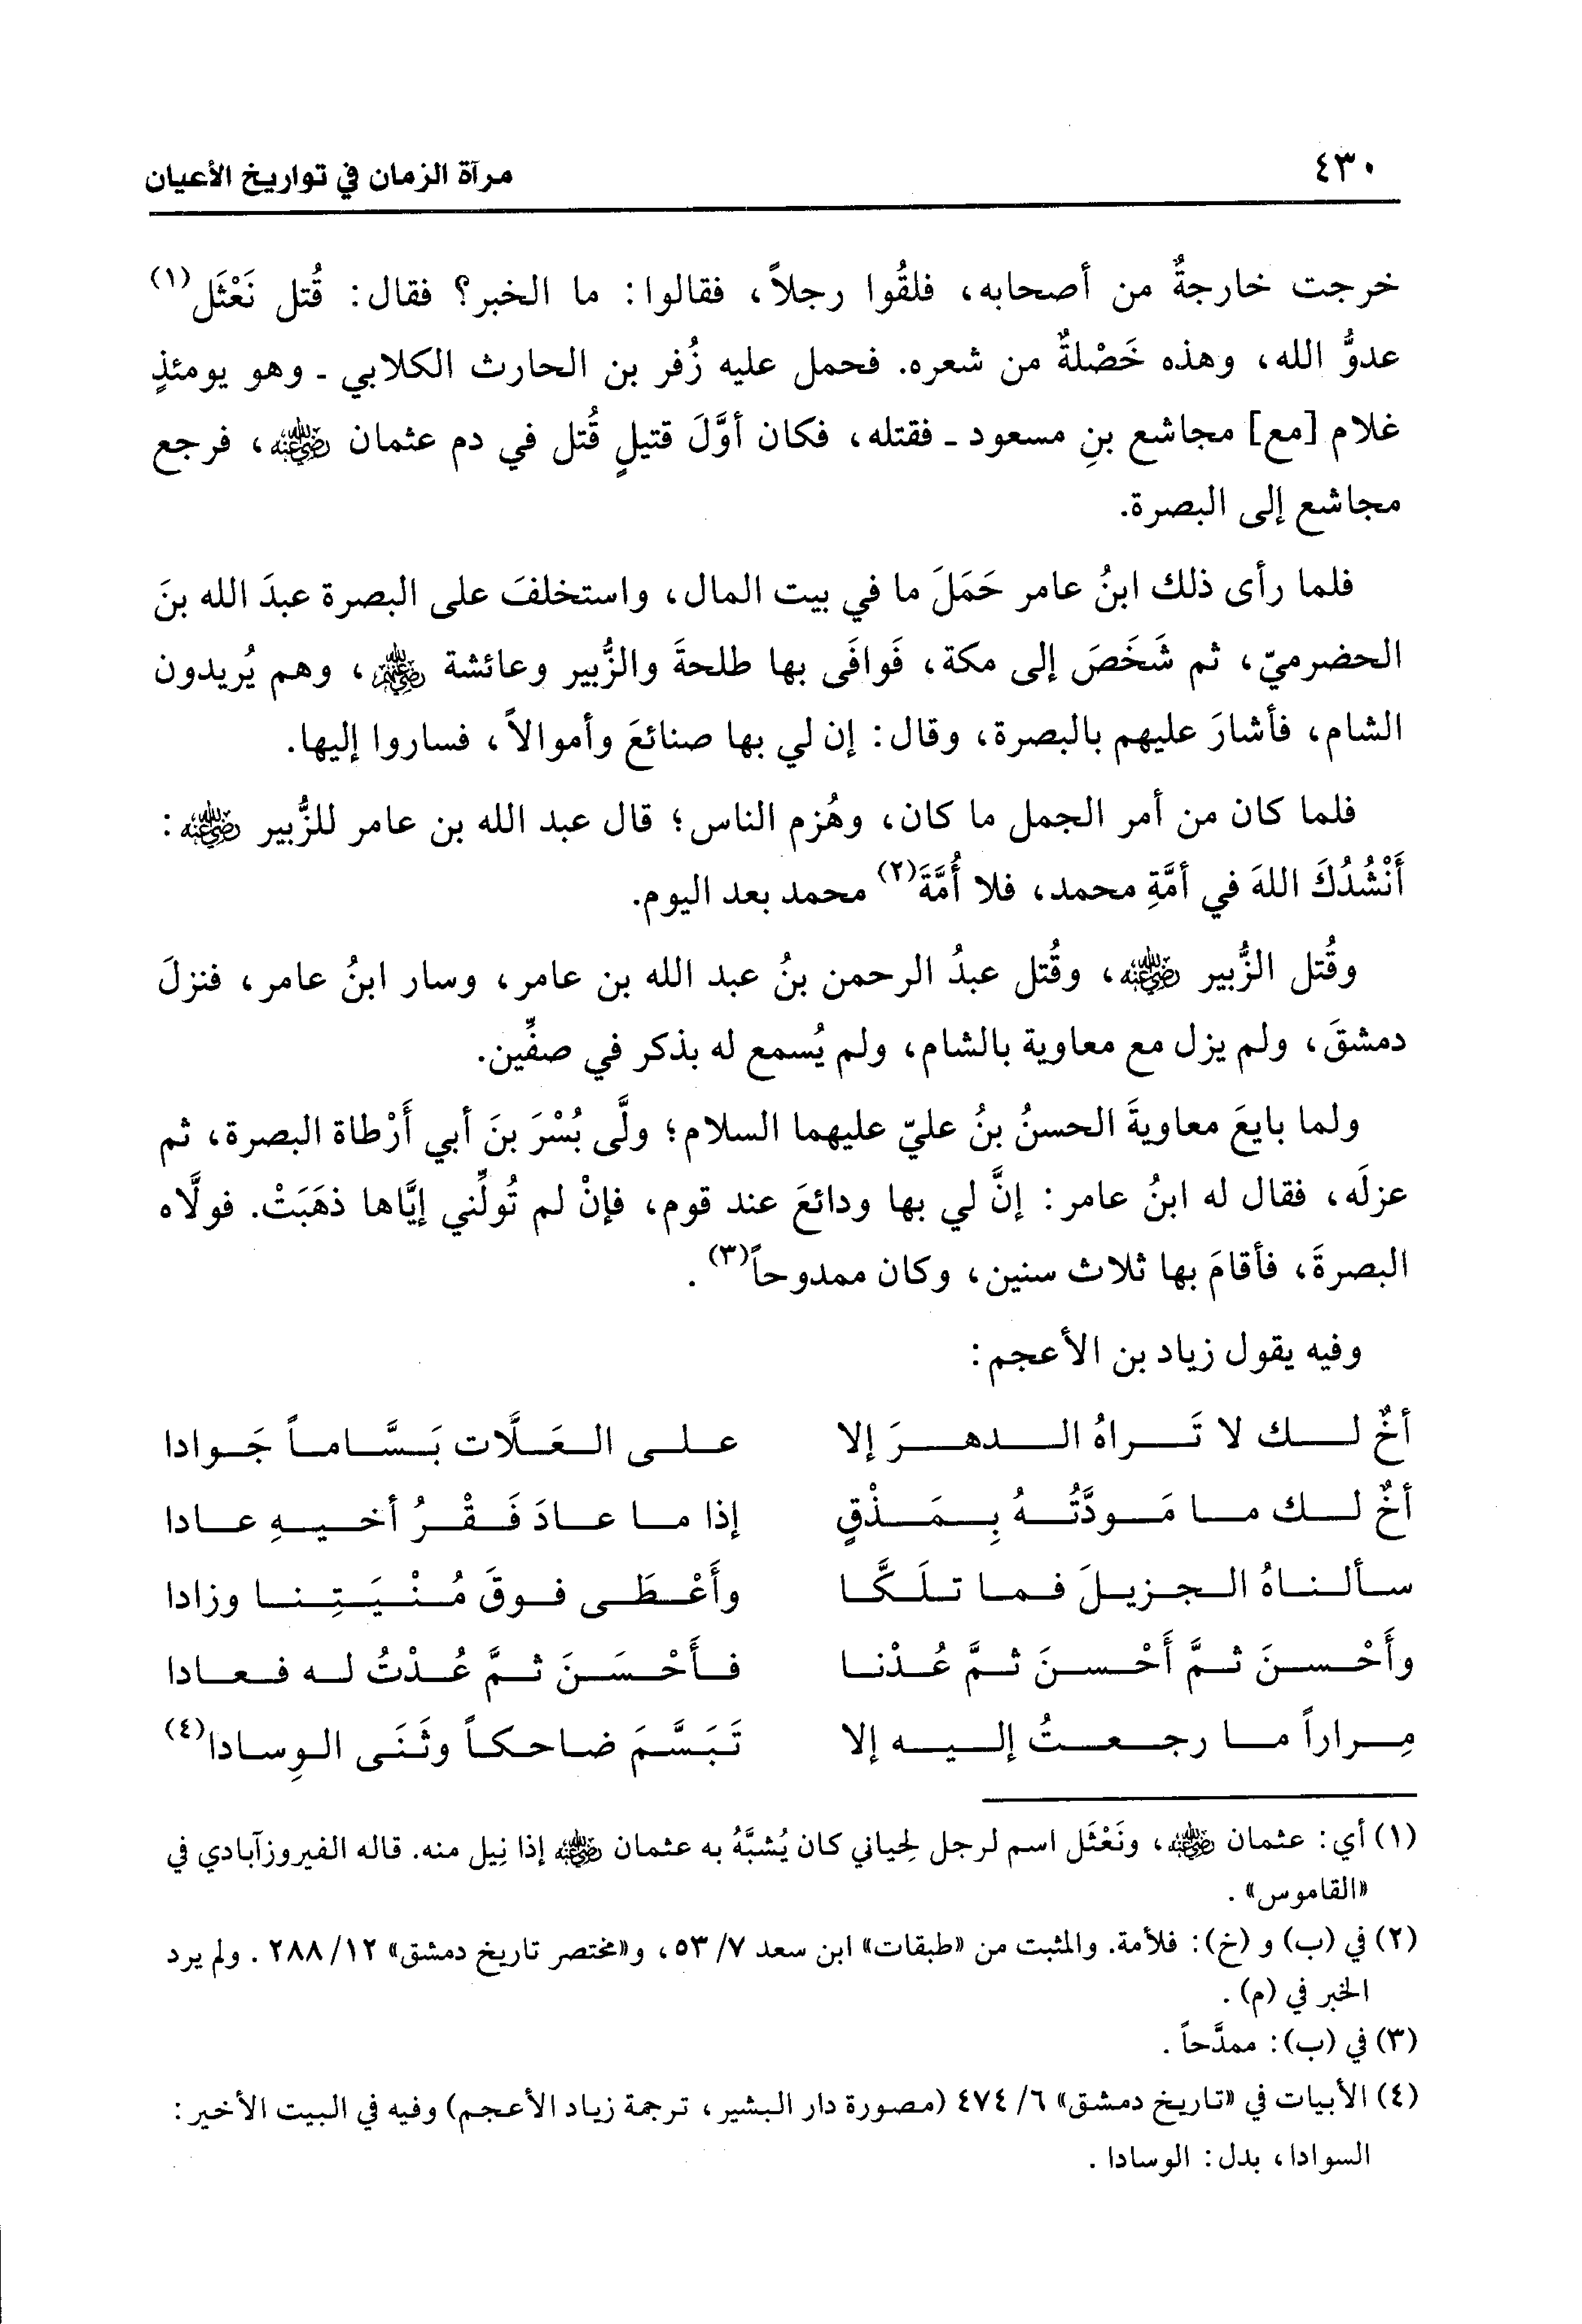 ٤٣٠
مرآة الزمان في تواريخ الأعيان
خرجت خارجةٌ من أصحابه، فلقُوا رجلاً، فقالوا: ما الخبر؟ فقال: قُتل نَعْثَل(١)
عدوُّ الله، وهذه خَصْلةٌ من شعره. فحمل عليه زُفر بن الحارث الكلابي ـ وهو يومئذٍ
غلام [مع] مجاشع بنِ مسعود ـ فقتله، فكان أوَّلَ قتيلٍ قُتل في دم عثمان رضي الله عنه، فرجع
مجاشع إلى البصرة.
فلما رأى ذلك ابنُ عامر حَمَلَ ما في بيت المال، واستخلفَ على البصرة عبدَ الله بنَ
الحضرميّ، ثم شَخَصَ إلى مكة، فَوافَى بها طلحةَ والزُّبير وعائشة رضي الله عنهم، وهم يُريدون
الشام، فأشارَ عليهم بالبصرة، وقال: إن لي بها صنائعَ وأموالاً، فساروا إليها.
فلما كان من أمر الجمل ما كان، وهُزم الناس؛ قال عبد الله بن عامر للزُّبير رضي الله عنه:
أَنْشُدُكَ اللهَ في أمَّةِ محمد، فلا أُمَّةَ(٢) محمد بعد اليوم.
وقُتل الزُّبير رضي الله عنه، وقُتل عبدُ الرحمن بنُ عبد الله بن عامر، وسار ابنُ عامر، فنزلَ
دمشقَ، ولم يزل مع معاوية بالشام، ولم يُسمع له بذكر في صفِّين.
ولما بايعَ معاويةَ الحسنُ بنُ عليّ عليهما السلام؛ ولَّى بُسْرَ بنَ أبي أَرْطاة البصرة، ثم
عزلَه، فقال له ابنُ عامر: إنَّ لي بها ودائعَ عند قوم، فإنْ لم تُولِّني إيَّاها ذهَبَتْ. فولَّاه
البصرةَ، فأقامَ بها ثلاث سنين، وكان ممدوحاً(٣).
وفيه يقول زياد بن الأعجم:
أخٌ لـك لا تَـراهُ الـدهـرَ إلا علـى العَلَّات بَـسَّـامـاً جَـوادا
أخٌ لـك مـا مَـودَّتُـهُ بِـمَـذْقٍ إذا مـا عـادَ فَـقْـرُ أخـيـهِ عـادا
سـألـنـاهُ الـجـزيـلَ فـمـا تـلَـكَّـا وأَعْـطَـى فـوقَ مُـنْـيَـتِـنـا وزادا
وأَحْـسـنَ ثـمَّ أَحْـسـنَ ثـمَّ عُـدْنـا فـأَحْـسَـنَ ثـمَّ عُـدْتُ لـه فـعـادا
مِـراراً مـا رجـعـتُ إلـيـه إلا تَـبَـسَّـمَ ضـاحـكـاً وثَـنَـى الـوِسـادا(٤)
(١) أي: عثمان رضي الله عنه، ونَعْثَل اسم لرجل لِحياني كان يُشبَّهُ به عثمان رضي الله عنه إذا نِيل منه. قاله الفيروزآبادي في
«القاموس».
(٢) في (ب) و (خ): فلأمة. والمثبت من «طبقات» ابن سعد ٧/ ٥٣، و«مختصر تاريخ دمشق» ١٢/ ٢٨٨. ولم يرد
الخبر في (م).
(٣) في (ب): ممدَّحاً.
(٤) الأبيات في «تاريخ دمشق» ٦/ ٤٧٤ (مصورة دار البشير، ترجمة زياد الأعجم) وفيه في البيت الأخير:
السوادا، بدل: الوسادا.